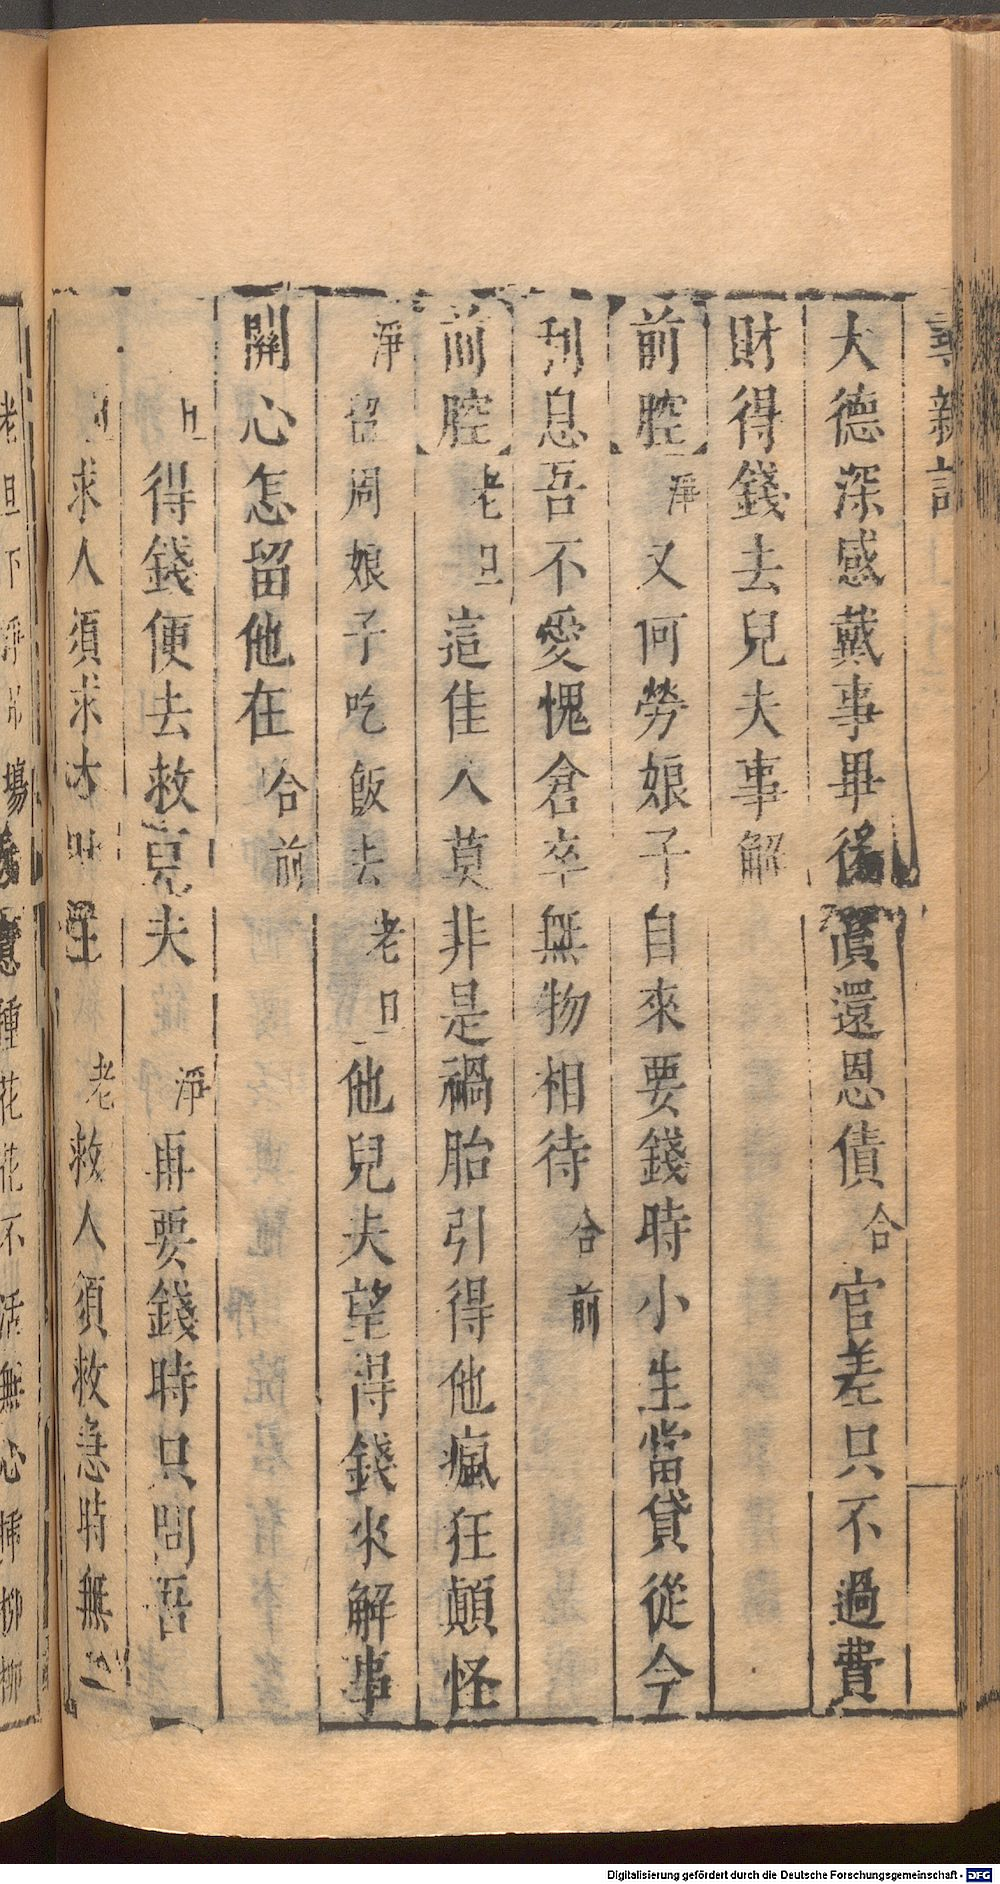 尋親記
大德深感戴事畢後償還恩債合官差只不過費
財得錢去兒夫事解
前腔淨又何勞娘子自來要錢時小生當貸從今
刊息吾不愛愧倉卒無物相待合前
前腔老旦這佳人莫非是禍胎引得他瘋狂顛怪
淨留周娘子吃飯去老旦他兒夫望得錢來解事
關心怎留他在合前
旦得錢便去救兒夫淨再要錢時只問吾
旦求人須求大丈夫老救人須救急時無
老旦下淨吊場
意種花花不活無心插柳柳
Digitalisierung gefördert durch die Deutsche Forschungsgemeinschaft - DFG